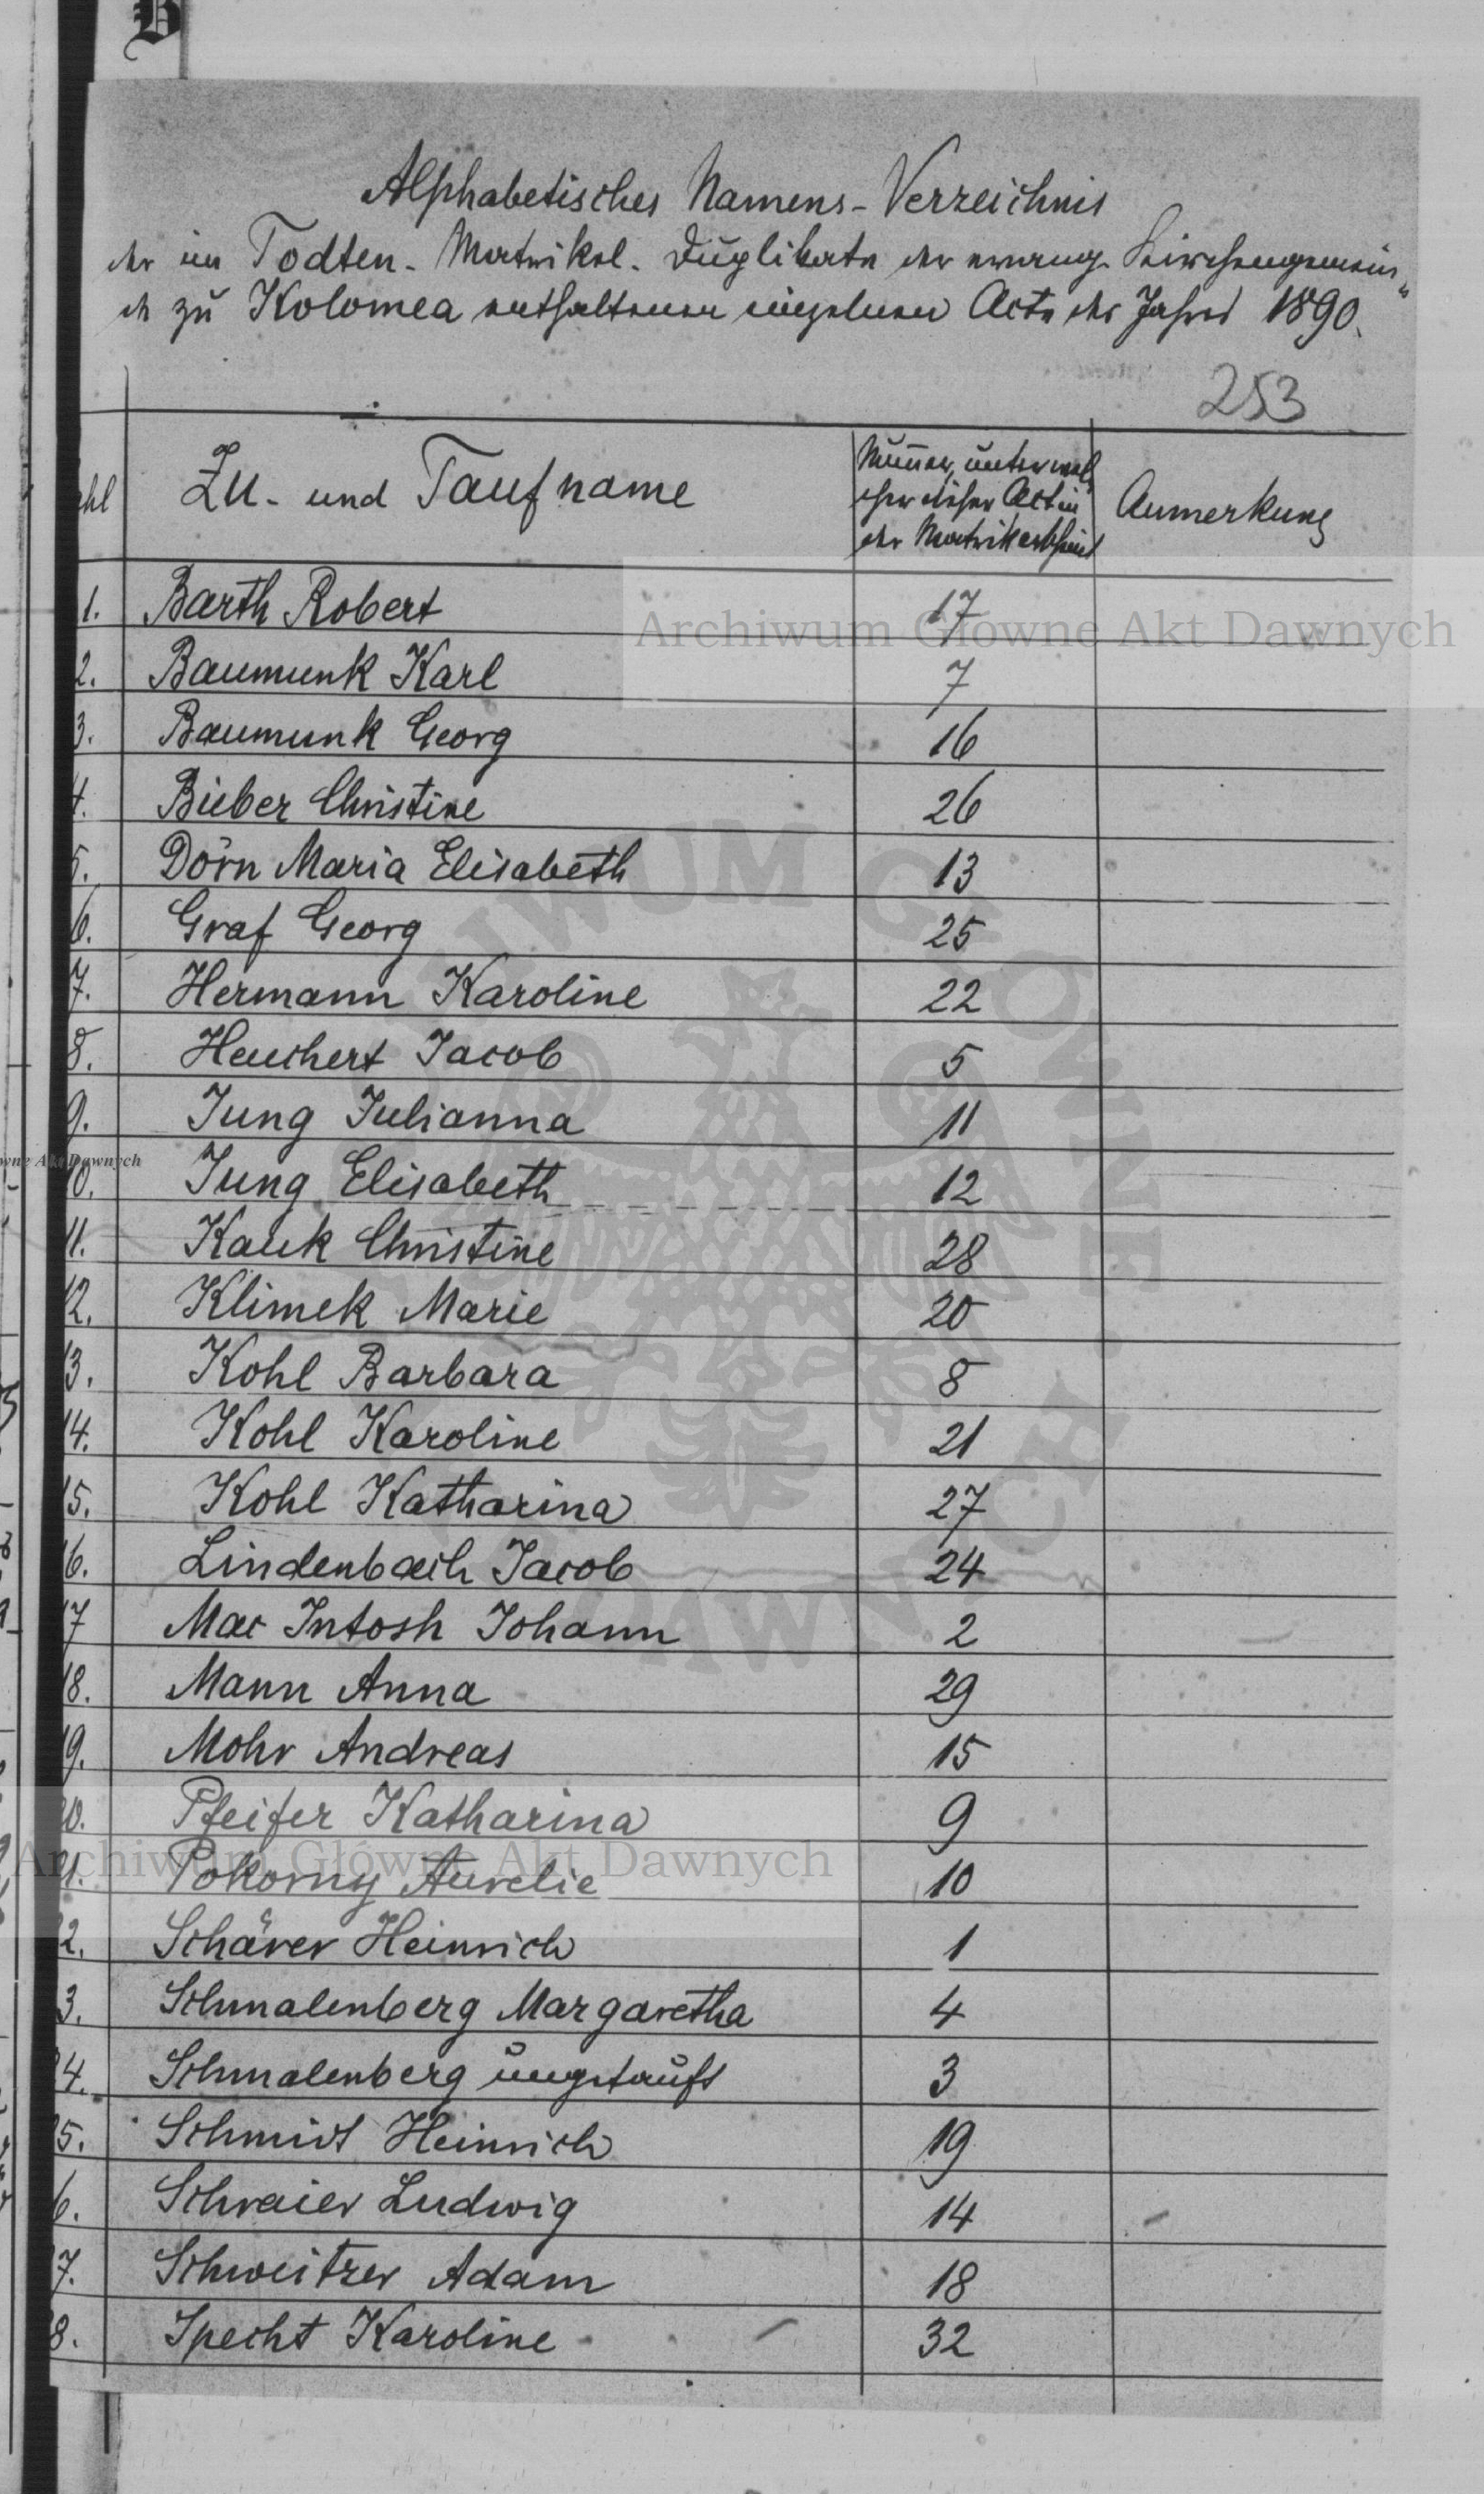 B
Alphabetisches Namens-Verzeichnis
der im Todten-Matrikel-Duplikate der evang. Kirchengemein„
de zu Kolomea enthaltenen einzelnen Acte des Jahres 1890.
253
hl Zu- und Taufname Num̅er, unter wel„ cher dieser Act in der Matrik erscheint Anmerkung
1. Barth Robert 17
Archiwum Główne Akt Dawnych
2. Baumunk Karl 7
3. Baumunk Georg 16
4. Bieber Christine 26
5. Dörn Maria Elisabeth 13
6. Graf Georg 25
7. Hermann Karoline 22
8. Heuchert Jacob 5
9. Jung Julianna 11
wne Akt Dawnych
10. Jung Elisabeth 12
11. Kauk Christine 28
12. Klimek Marie 20
13. Kohl Barbara 8
14. Kohl Karoline 21
15. Kohl Katharina 27
16. Lindenbach Jacob 24
17 Mac Intosh Johann 2
18. Mann Anna 29
19. Mohr Andreas 15
20. Pfeifer Katharina 9
Archiwum Główne Akt Dawnych
21. Pokorny Aurelie 10
2. Schärer Heinrich 1
3. Schmalenberg Margaretha 4
24. Schmalenberg ungetauft 3
25. Schmidt Heinrich 19
6. Schraier Ludwig 14
7. Schweitzer Adam 18
8. Specht Karoline 32